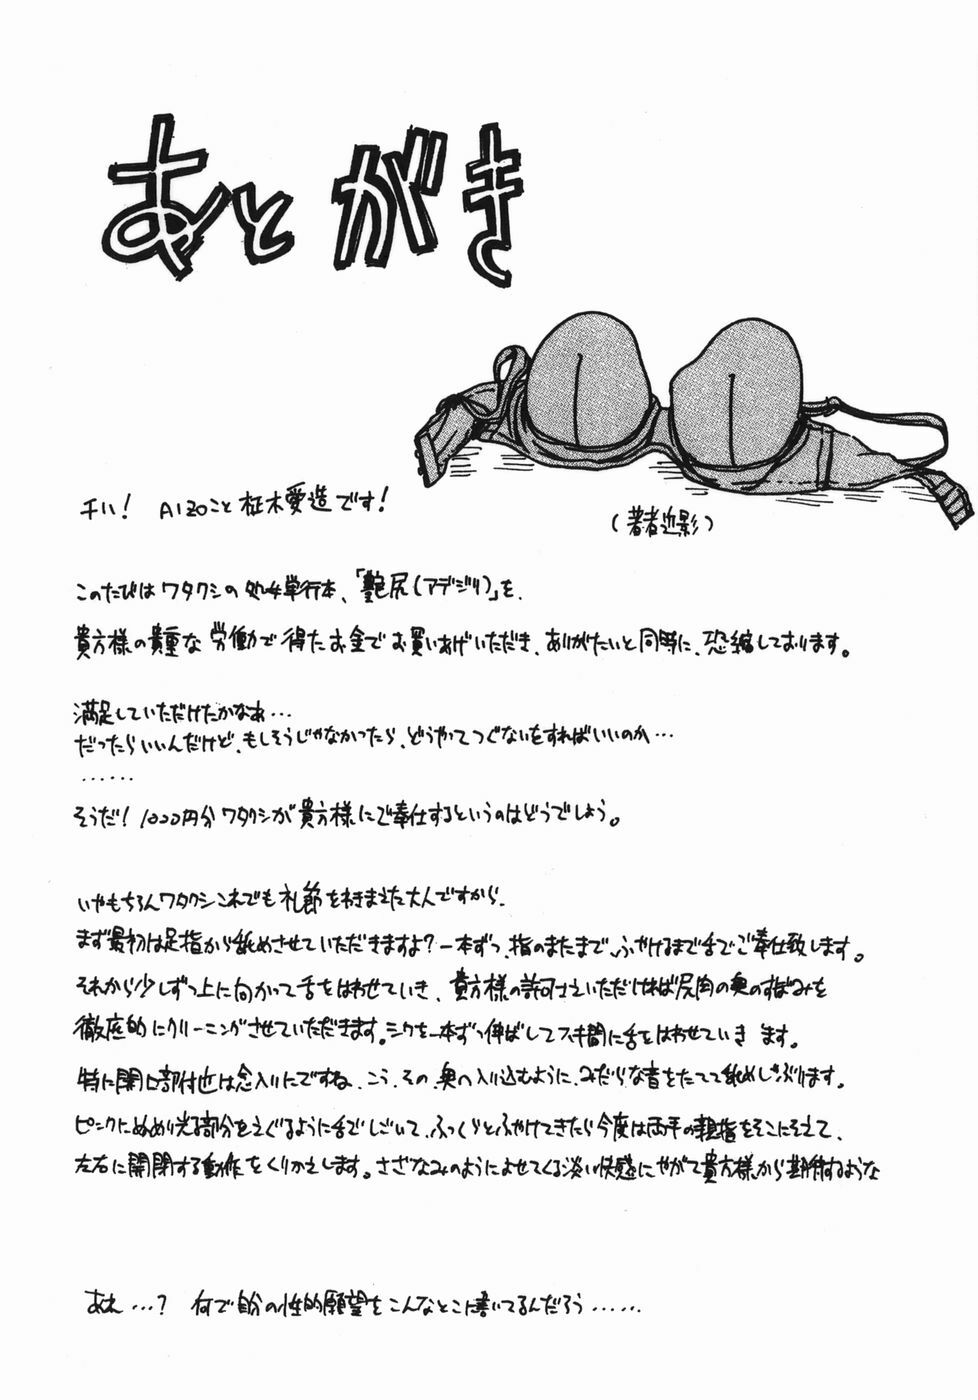 あとがき
チハ! AIZOこと柾木愛造です!
(著者近影)
このたびはワタクシの処女単行本、「艶尻(アデジリ)」を、
貴方様の貴重な労働で得たお金でお買いあげいただき、ありがたいと同時に、恐縮しております。
満足していただけたかなぁ…
だったらいいんだけど、もしそうじゃなかったら、どうやってつぐないをすればいいのか…
……
そうだ!1000円分ワタクシが貴方様にご奉仕するというのはどうでしょう。
いやもちろんワタクシこれでも礼節をわきまえた大人ですから、
まず最初は足指から舐めさせていただきますよ?一本ずつ、指のまたまで、ふやけるまで舌でご奉仕致します。
それから少しずつ上に向かって舌をはわせていき、貴方様の許可さえいただければ尻肉の奥のすぼみを
徹底的にクリーニングさせていただきます。シワを一本ずつ伸ばしてスキ間に舌をはわせていき ます。
特に開口部付近は念入りにですね、こう、その、奥へ入り込むように、みだらな音をたてて舐めしゃぶります。
ピンクにぬめり光る部分をえぐるように舌でしごいて、ふっくらとふやけてきたら今度は両手の親指をそこにそえて、
左右に開閉する動作をくりかえします。さざなみのようによせてくる淡い快感にやがて貴方様から期待するような
あれ…? 何で自分の性的願望をこんなとこに書いてるんだろう……